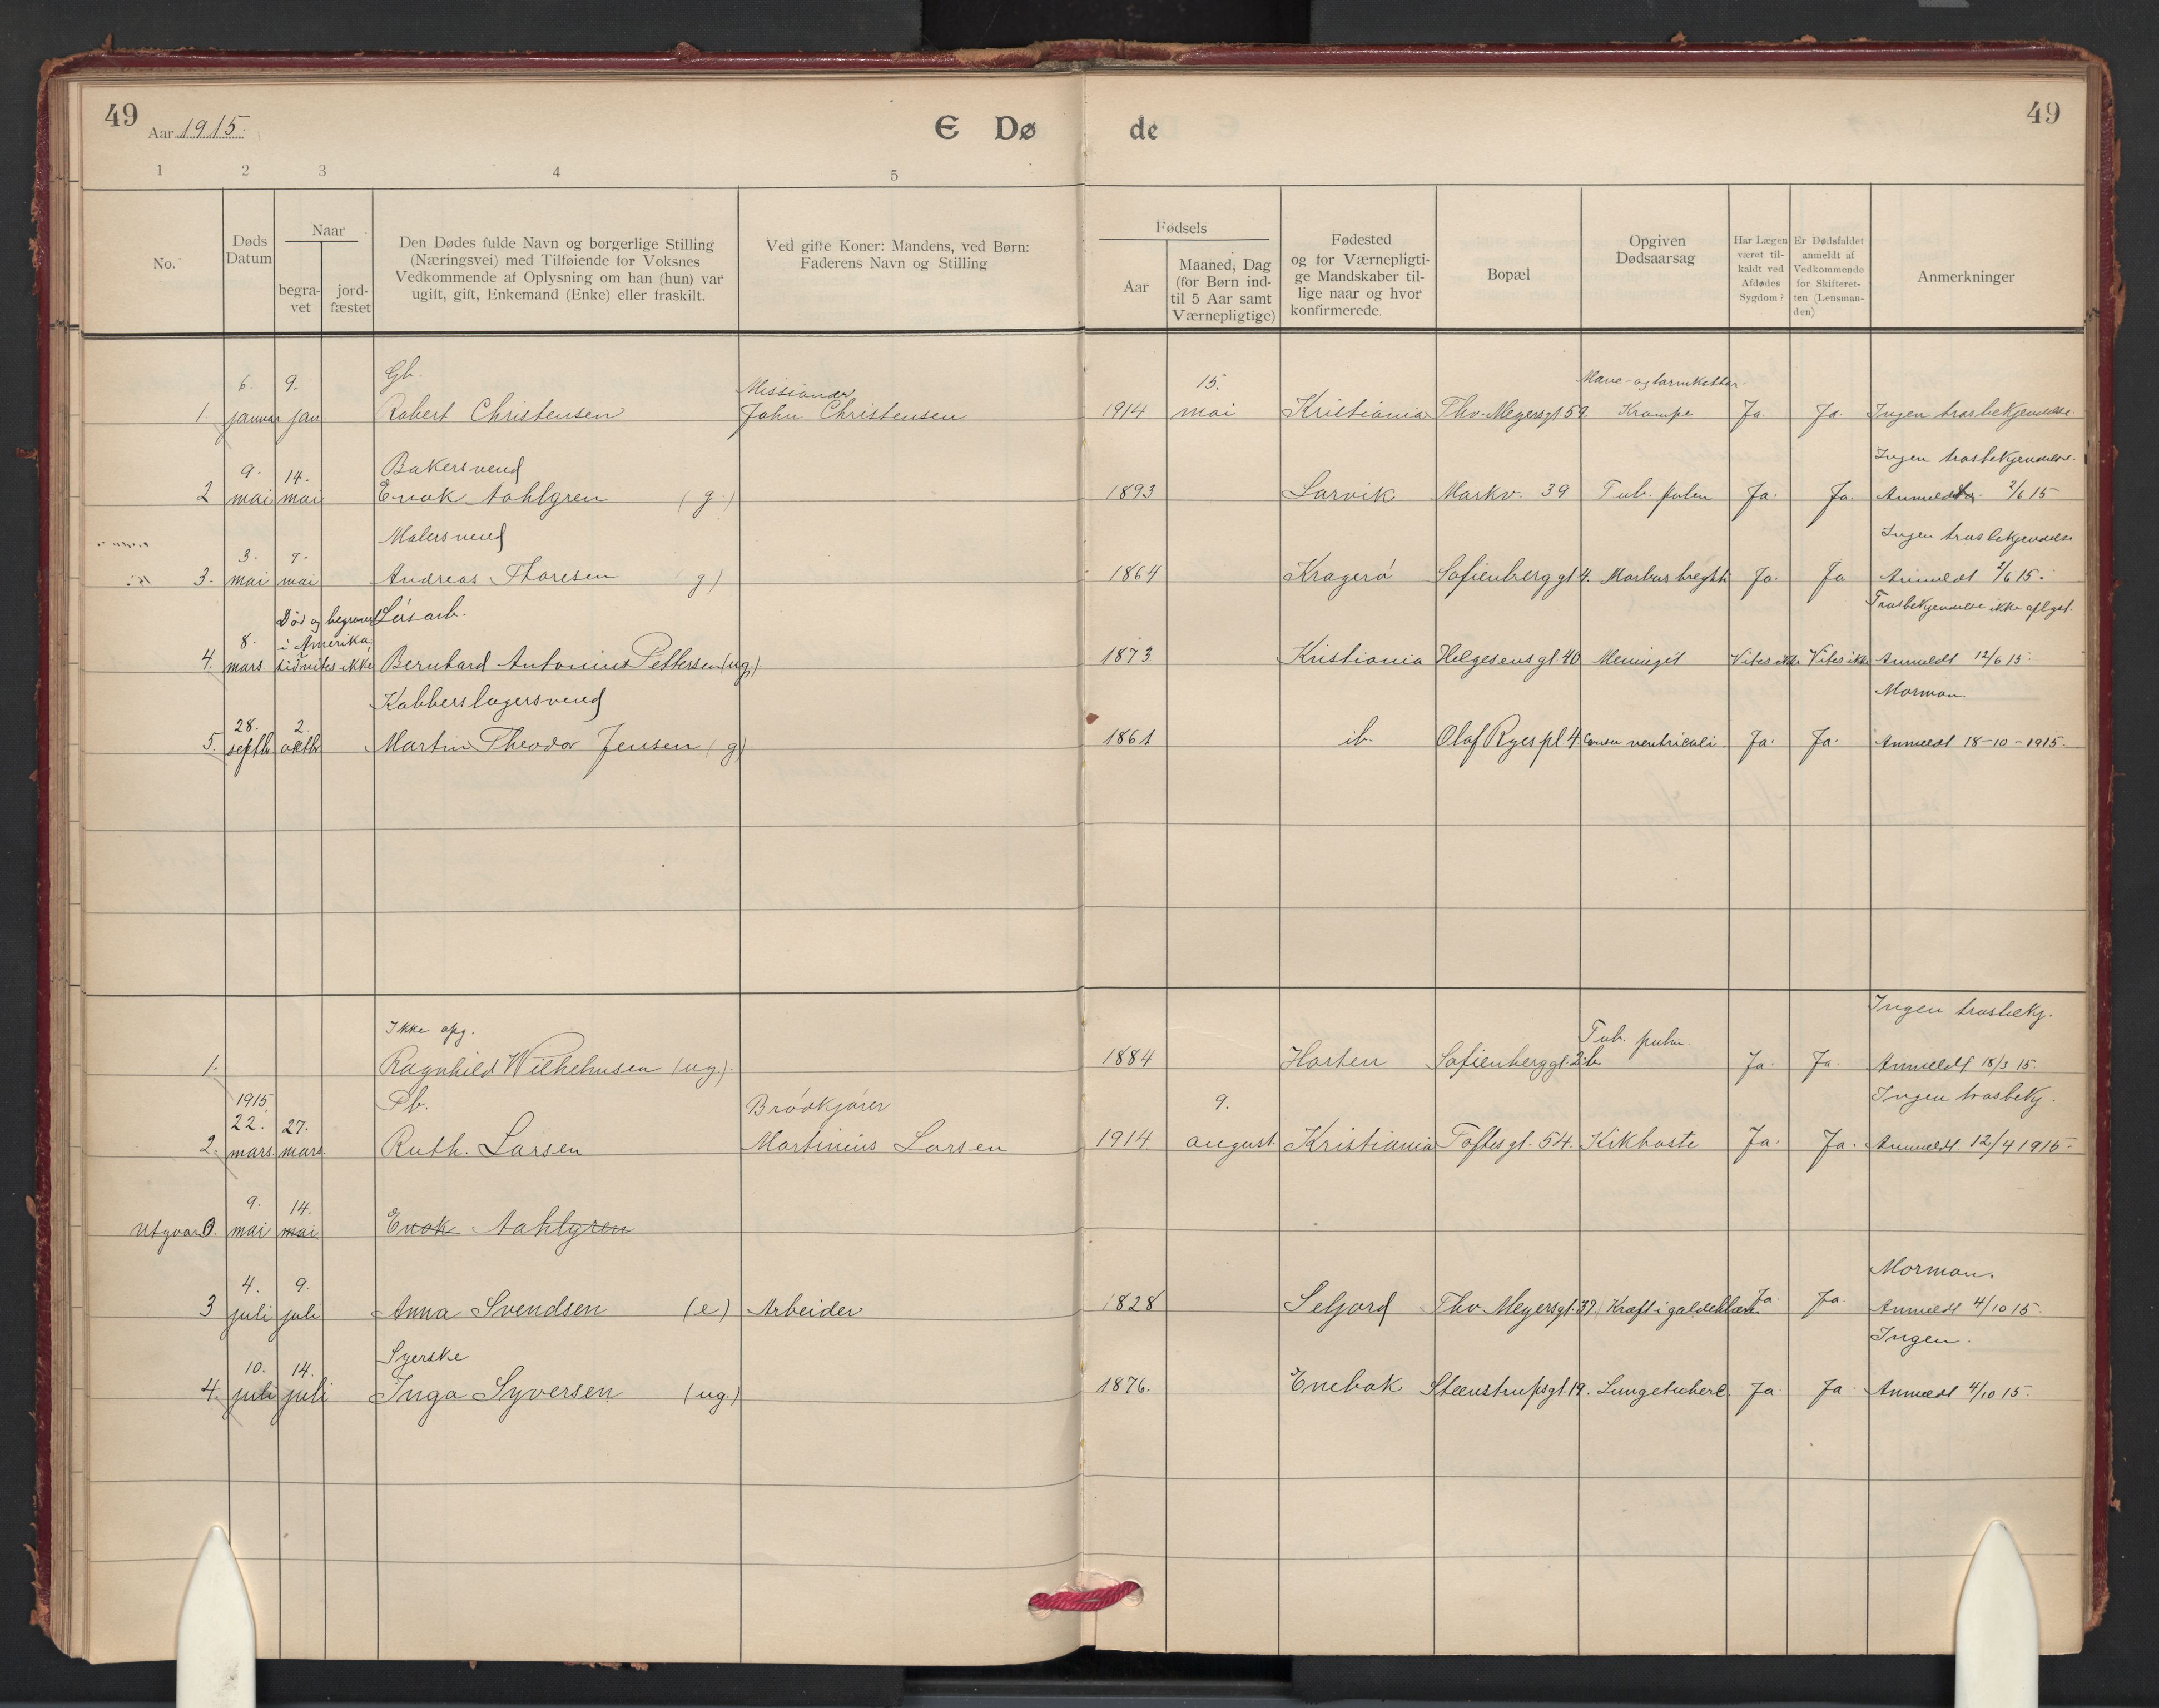 49 Aar 1915. E Dø de 49
1 2 3 4 5
No.
Døds Datum
Naar
begra-
vet
jord-
fæstet
Den Dødes fulde Navn og borgerlige Stilling
(Næringsvei) med Tilføiende for Voksnes
Vedkommende af Oplysning om han (hun) var
ugift, gift, Enkemand (Enke) eller fraskilt.
Ved gifte Koner: Mandens, ved Børn:
Faderens Navn og Stilling
Fødsels
Aar
Maaned, Dag
(for Børn ind-
til 5 Aar samt
Værnepligtige)
Fødested
og for Værnepligti-
ge Mandskaber til-
lige naar og hvor
konfirmerede.
Bopæl
Opgiven
Dødsaarsag
Har Lægen
været til-
kaldt ved
Afdødes
Sygdom?
Er Dødsfaldet
anmeldt af
Vedkommende
for Skifteret-
ten (Lensman-
den)
Anmerkninger
6. 9. Gb. Missionær 15. Mave- og tarmkatter
1. januar jan Robert Christensen John Christensen 1914 mai Kristiania Thv. Meyersgt 59. Krampe Ja. Ja. Ingen trosbekjendelse.
9. 14. Bakersvend Ingen trosbekjendelse.
2 mai mai Enok Aahlgren (g.) 1893 Larvik Markv. 39 Tub. pulm Ja. Ja. Anmeldt 2/6 15
3. 7. Malersvend Ingen trosbekjendelse
3. mai mai Andreas Thoresen g) 1864 Kragerø Sofienberg gt 4. Morbus brightii Ja. Ja Anmeldt 2/6 15.
8. Død og begravet i Amerika, Løsarb. Trosbekjendelse ikke oplyst.
4. mars tid vites ikke Bernhard Antonius Pettersen (ug.) 1873. Kristiania Helgesens gt. 40 Meningit Vites ikke Vites ikke Anmeldt 12/6 15.
28. 2. Kobberslagersvend Mormon.
5. septb oktb Martin Theodor Jensen (g) 1861 ib. Olaf Ryes pl 4. Cancer ventriculi Ja. Ja. Anmeldt 18-10-1915.
Ikke opg. Tub. pulm. Ingen trosbekj.
1. Ragnhild Wilhelmsen (ug). 1884 Horten Sofienberggt. 2 b. Ja. Ja. Anmeldt 18/3 15.
1915
22. 27. Pb. Brødkjører 9. Ingen trosbekj.
2. mars. mars. Ruth. Larsen Martinius Larsen 1914 august. Kristiania Toftesgt. 54. Kikhoste Ja. Ja. Anmeldt 12/4 1915
9. 14.
Utgaar 0. mai mai Enok Aahlgren
4. 9. Mormon.
3 juli juli Anna Svendsen (e) Arbeider 1828 Seljord Thv. Meyersgt. 37. Kræft i galdeblæren Ja. Ja. Anmeldt 4/10 15.
10. 14. Syerske Ingen.
4. juli juli Inga Syversen (ug.) 1876. Enebak Steenstrupsgt. 19. Lungetuberk Ja. Ja. Anmeldt 4/10 15.